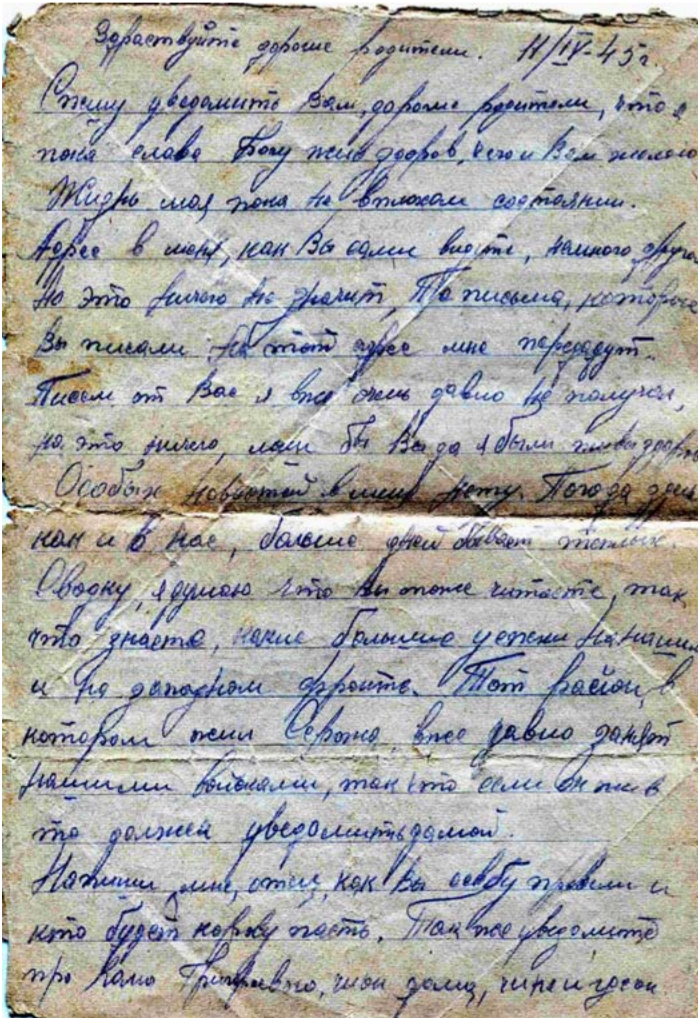 Здраствуйте дорогие родители. 11/IV-45г.
Спешу уведомить Вам, дорогие родители, что я
пока слава Богу жив здоров, чего и Вам желаю
Жизнь моя пока не вплохом состоянии.
Адрес в меня, как Вы сами видите, немного другой
Но это ничего не значит, Те письма, которые
Вы писали на тот адрес мне передадут.
Писем от Вас я вже очень давно не получал,
но это ничего, лиш бы Вы да я были живы здоровы
Особых новостей в меня нету. Погода здесь
как и в нас, больше дней бывает теплых.
Сводку, я думаю что вы тоже читаете, так
что знаете, какие большие успехи на нашем
и на западном фронте. Тот район, в
котором жил Сережа, вже давно занят
нашими войсками, так что если он жив
то должен уведомить домой.
Напиши мне, отец, как Вы севбу провели и
кто будет корову пасть. Так же уведомите
про дома, чи не